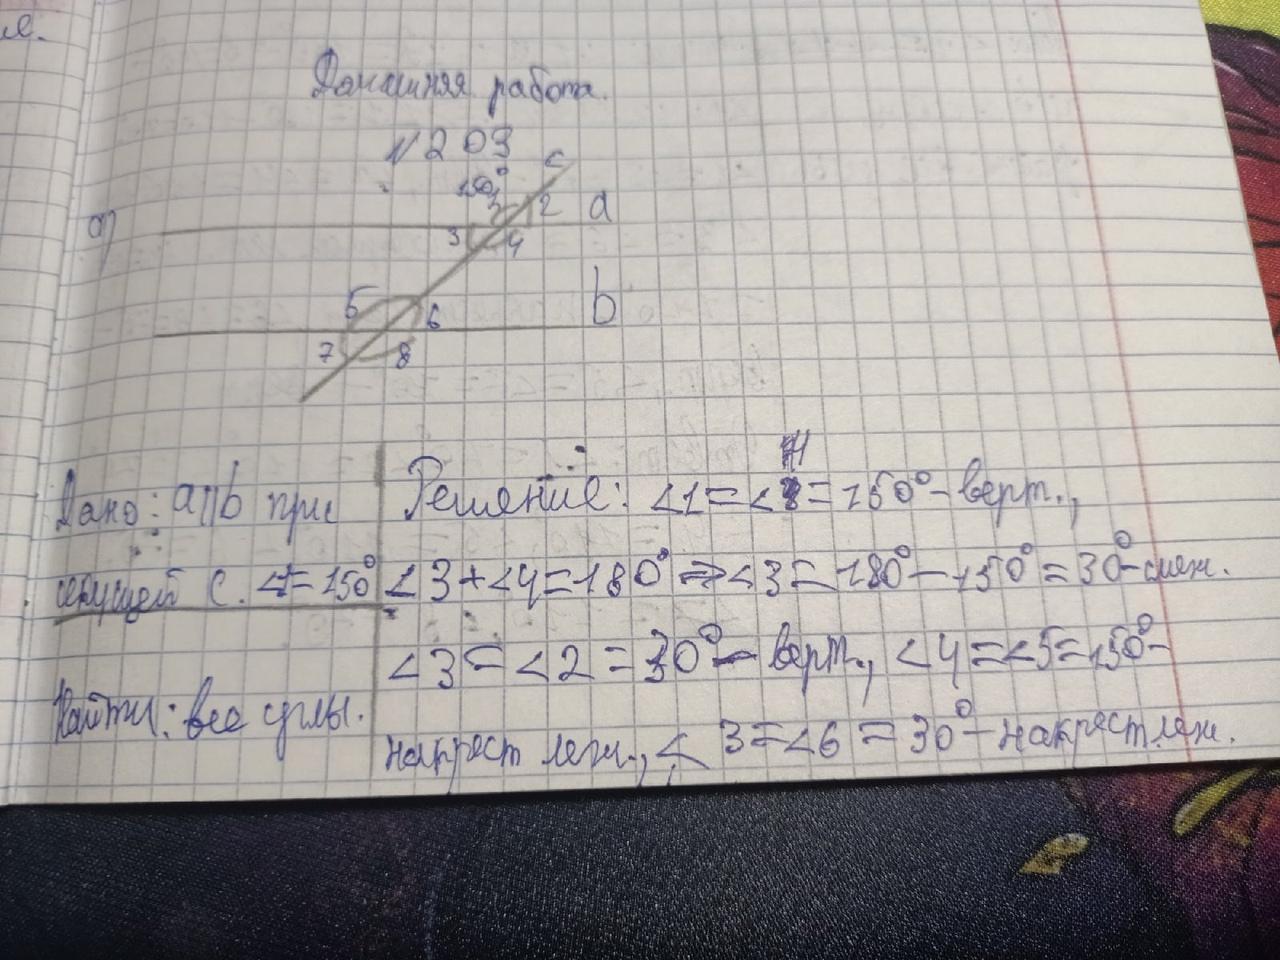 я.
Домашняя работа.
№203
а)
150°
c
1 2 a
3 4
5 6 b
7 8
Дано: a||b при
секущей c. <1=150°
Найти: все углы.
Решение: <1=<4=150°-верт.,
<3+<4=180°=><3=180°-150°=30°-смеж.
<3=<2=30°-верт., <4=<5=150°-
накрест леж., <3=<6=30°-накрест леж.